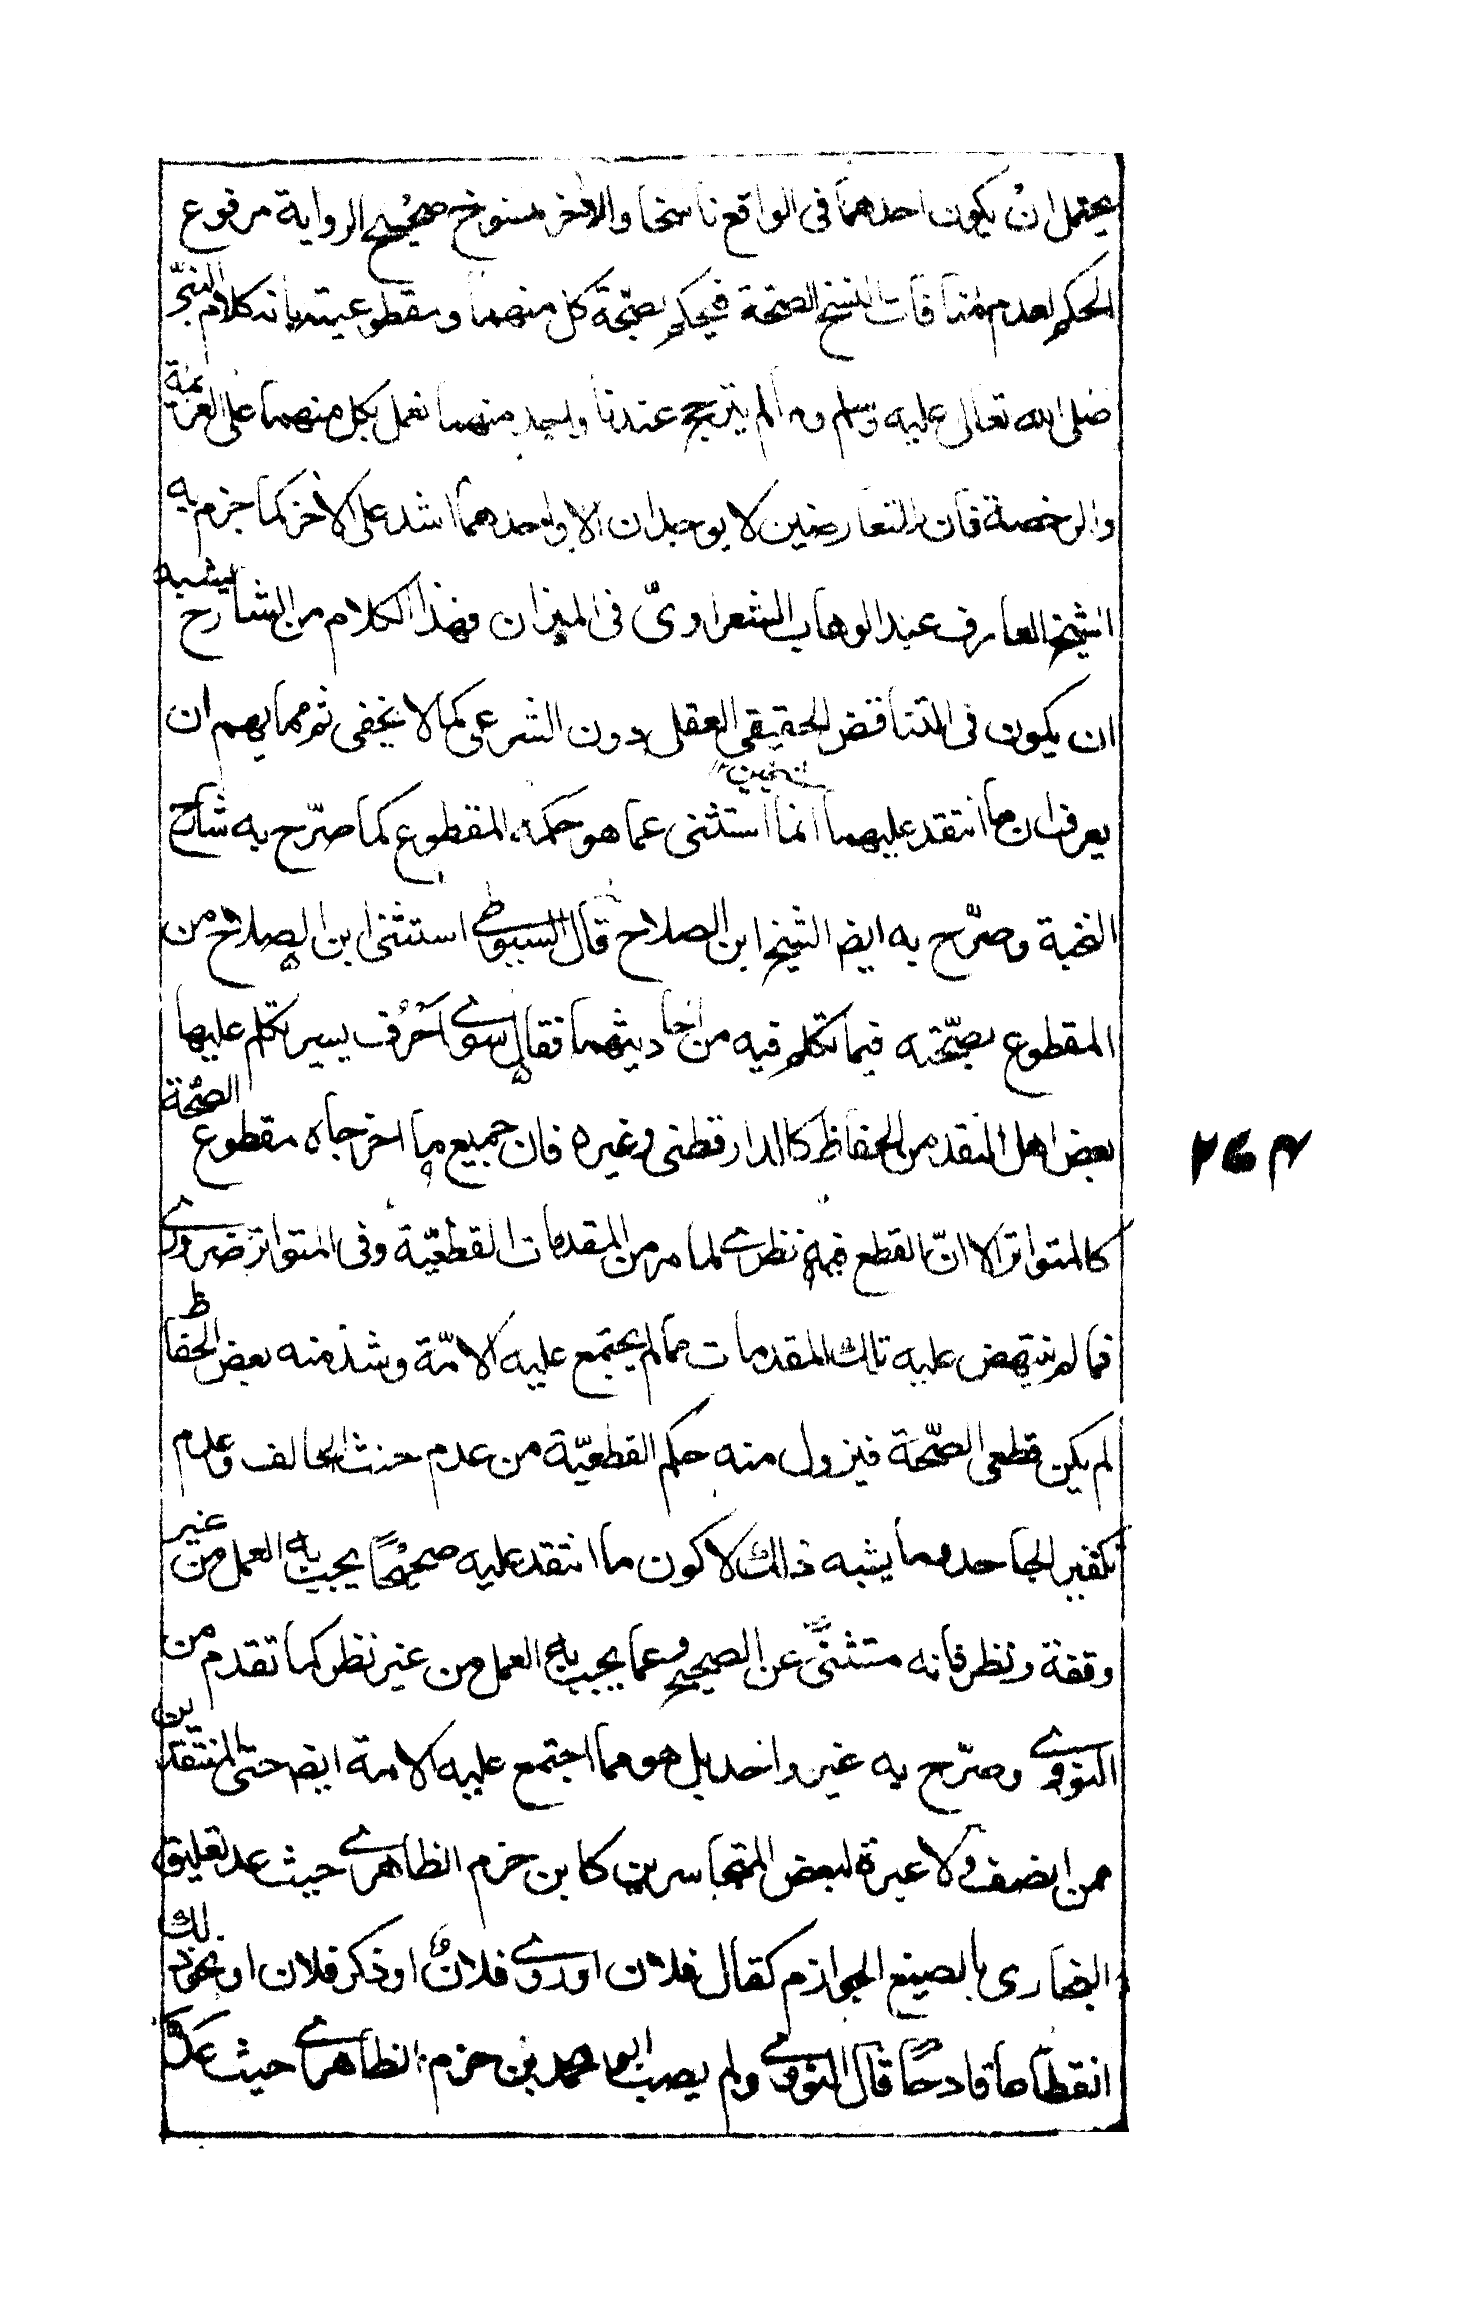 يحتمل ان يكون احدهما فى الواقع ناسخا والاخر منسوخ صحيح الرواية مرفوع
الحكم لعدم منافات النسخ الصحة فيحكم بصحّة كل منهما ومقطوعيته بانه كلام النبىّ
صلى الله تعالى عليه وسلم وما لم يترجح عندنا واحد منهما نعمل بكل منهما على العزيمة
والرخصة فان المتعارضين لا يوجدان الا واحدهما اشد على الاخر كما جزم به
الشيخ العارف عبد الوهاب الشعراوىّ فى الميزان فهذا الكلام من الشارح يشبه
ان يكون فى التناقض الحقيقى العقلى دون الشرعى كما لا يخفى ثم مما يهم ان
يعرف ان ما انتقد عليهما انما استثنى عما هو حكمه المقطوع كما صرّح به شارح
النخبة وصرّح به ايضا الشيخ ابن الصلاح قال السيوطى استثنى ابن الصلاح من
المقطوع بصحّته فيما تكلم فيه من احاديثهما فقال سوى احرف يسير تكلم عليها
بعض اهل النقد من الحفاظ كالدارقطنى وغيره فان جميع ما اخرجاه مقطوع الصحّة
كالمتواتر الا انّ القطع فيه نظرى لما مر من المقدمات القطعيّة وفى المتواتر ضرورى
فما لم ينتهض عليه تلك المقدمات مما لم يجتمع عليه الامّة وشذ منه بعض الحفاظ
لم يكن قطعى الصحّة فيزول منه حكم القطعيّة من عدم حنث الحالف وعدم
تكفير الجاحد وما يشبه ذالك لا كون ما انتقد عليه صحيحًا يجب به العمل من غير
وقفة ونظر فانه مستثنىً عن الصحيح وعما يجب به العمل من غير نظر كما تقدم من
النووى وصرّح به غير واحد بل هو مما اجتمع عليه الامة ايضا حتى المنتقدين
ممن انصف ولا عبرة لبعض المتجاسرين كابن حزم الظاهرى حيث عد تعليق
البخارى بالصيغ الجوازم كقال فلان او روى فلانٌ او ذكر فلان او نحو ذلك
انقطاعا قادحًا قال النووى ولم يصب ابو محمد بن حزم الظاهرى حيث عدّ